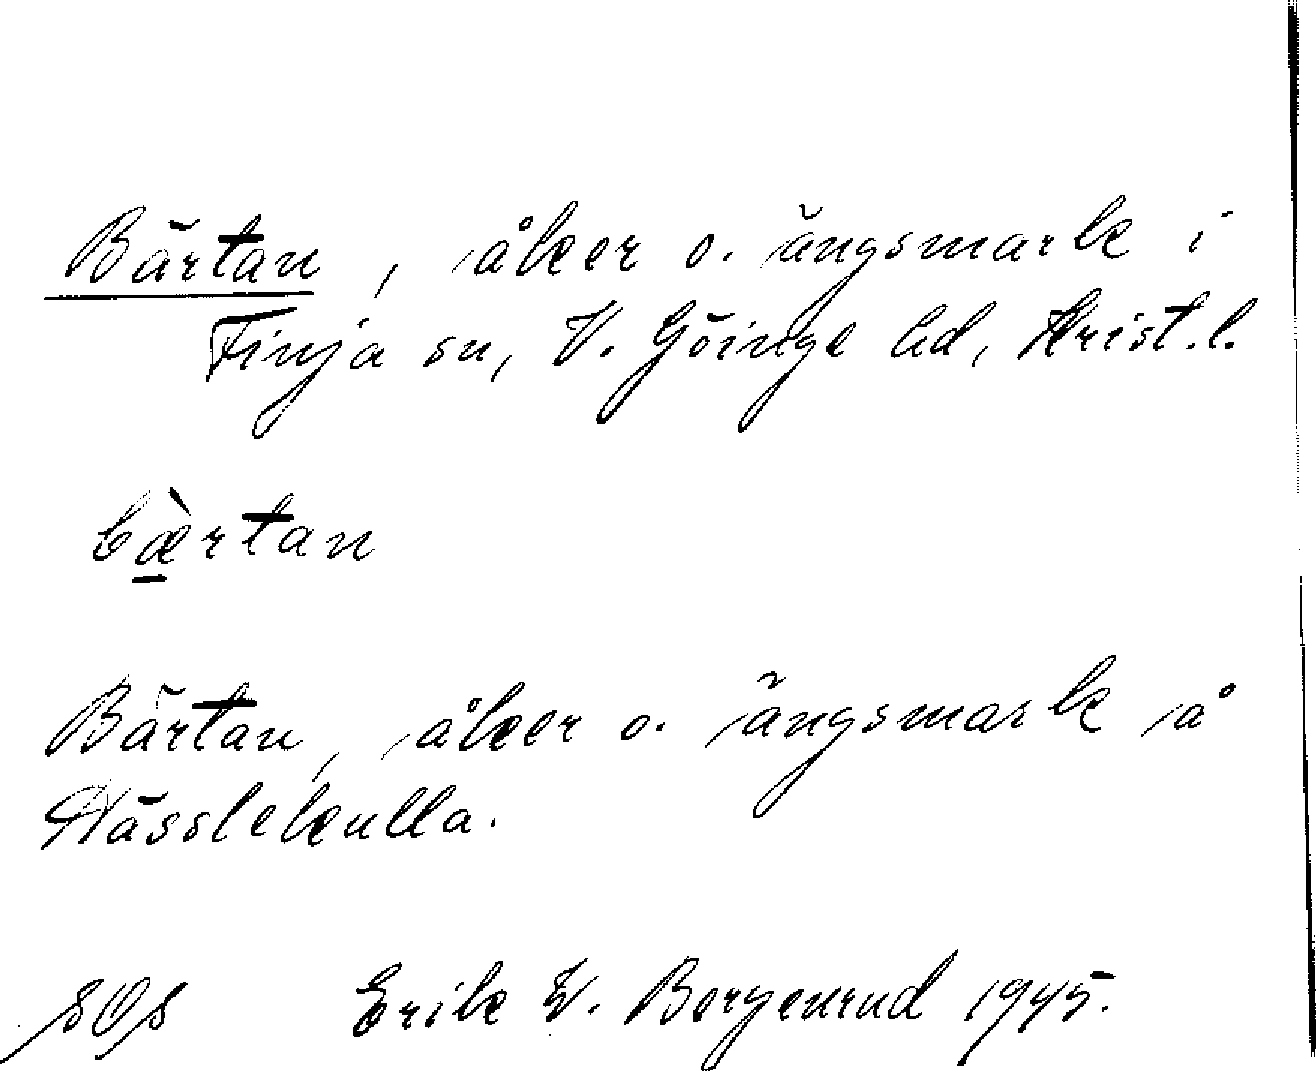 Bärtan, åker o. ängsmark i
Finja sn, V. Göinge hd, Krist.l.
bæ̀rtan
Bärtan, åker o. ängsmark å
Hässlekulla.
SOS Erik W. Borgenrud 1945.